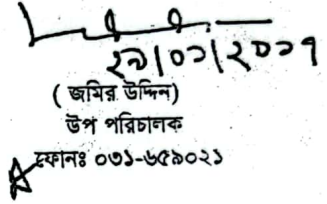 ২৯/০১/২০১৭
( জমির উদ্দিন)
উপ পরিচালক
ফোনঃ ০৩১-৬৫৯০২১